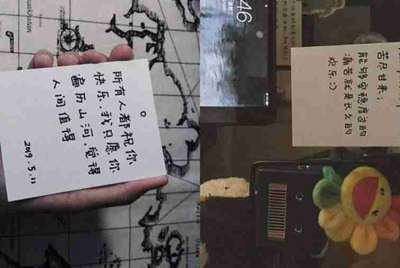 所有人都祝你
快乐、我只愿你
遍历山河 觉得
人间值得
2019.5.11
46
苦尽甘来;
能够安稳度过的
痛苦就是长久的
欢乐:)